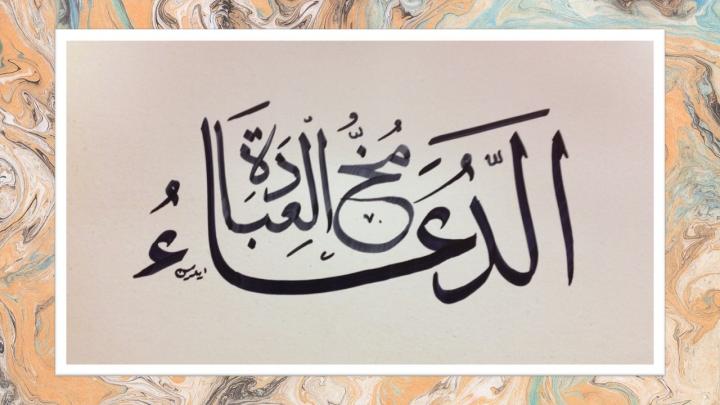 الدُّعَاءُ مُخُّ العِبَادَةِ